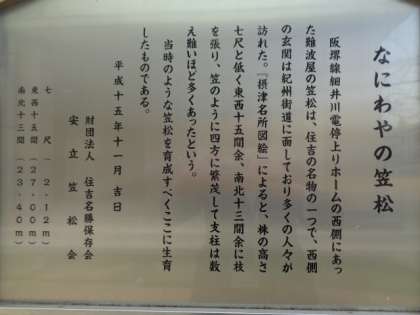 なにわやの笠松
阪堺線細井川電停上りホームの西側にあっ
た難波屋の笠松は、住吉の名物の一つで、西側
の玄関は紀州街道に面しており多くの人々が
訪れた。『摂津名所図絵』によると、株の高さ
七尺と低く東西十五間余、南北十三間余に枝
を張り、笠のように四方に繁茂して支柱は数
え難いほど多くあったという。
当時のような笠松を育成すべくここに生育
したものである。
平成十五年十一月 吉日
財団法人 住吉名勝保存会
安立笠松会
七尺(2.12m)
東西十五間(27.00m)
南北十三間(23.40m)